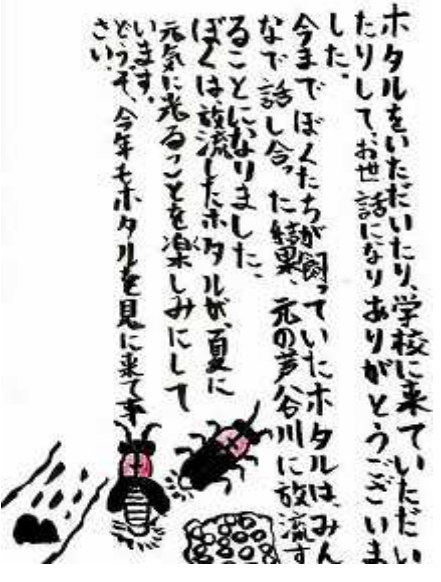 ホタルをいただいたり、学校に来ていただい
たりして、お世話になりありがとうございま
した。
今までぼくたちが飼っていたホタルは、みん
なで話し合った結果、元の芦谷川に放流す
ることになりました。
ぼくは放流したホタルが、夏に
元気に光ることを楽しみにして
います。
どうぞ、今年もホタルを見に来て下
さい。